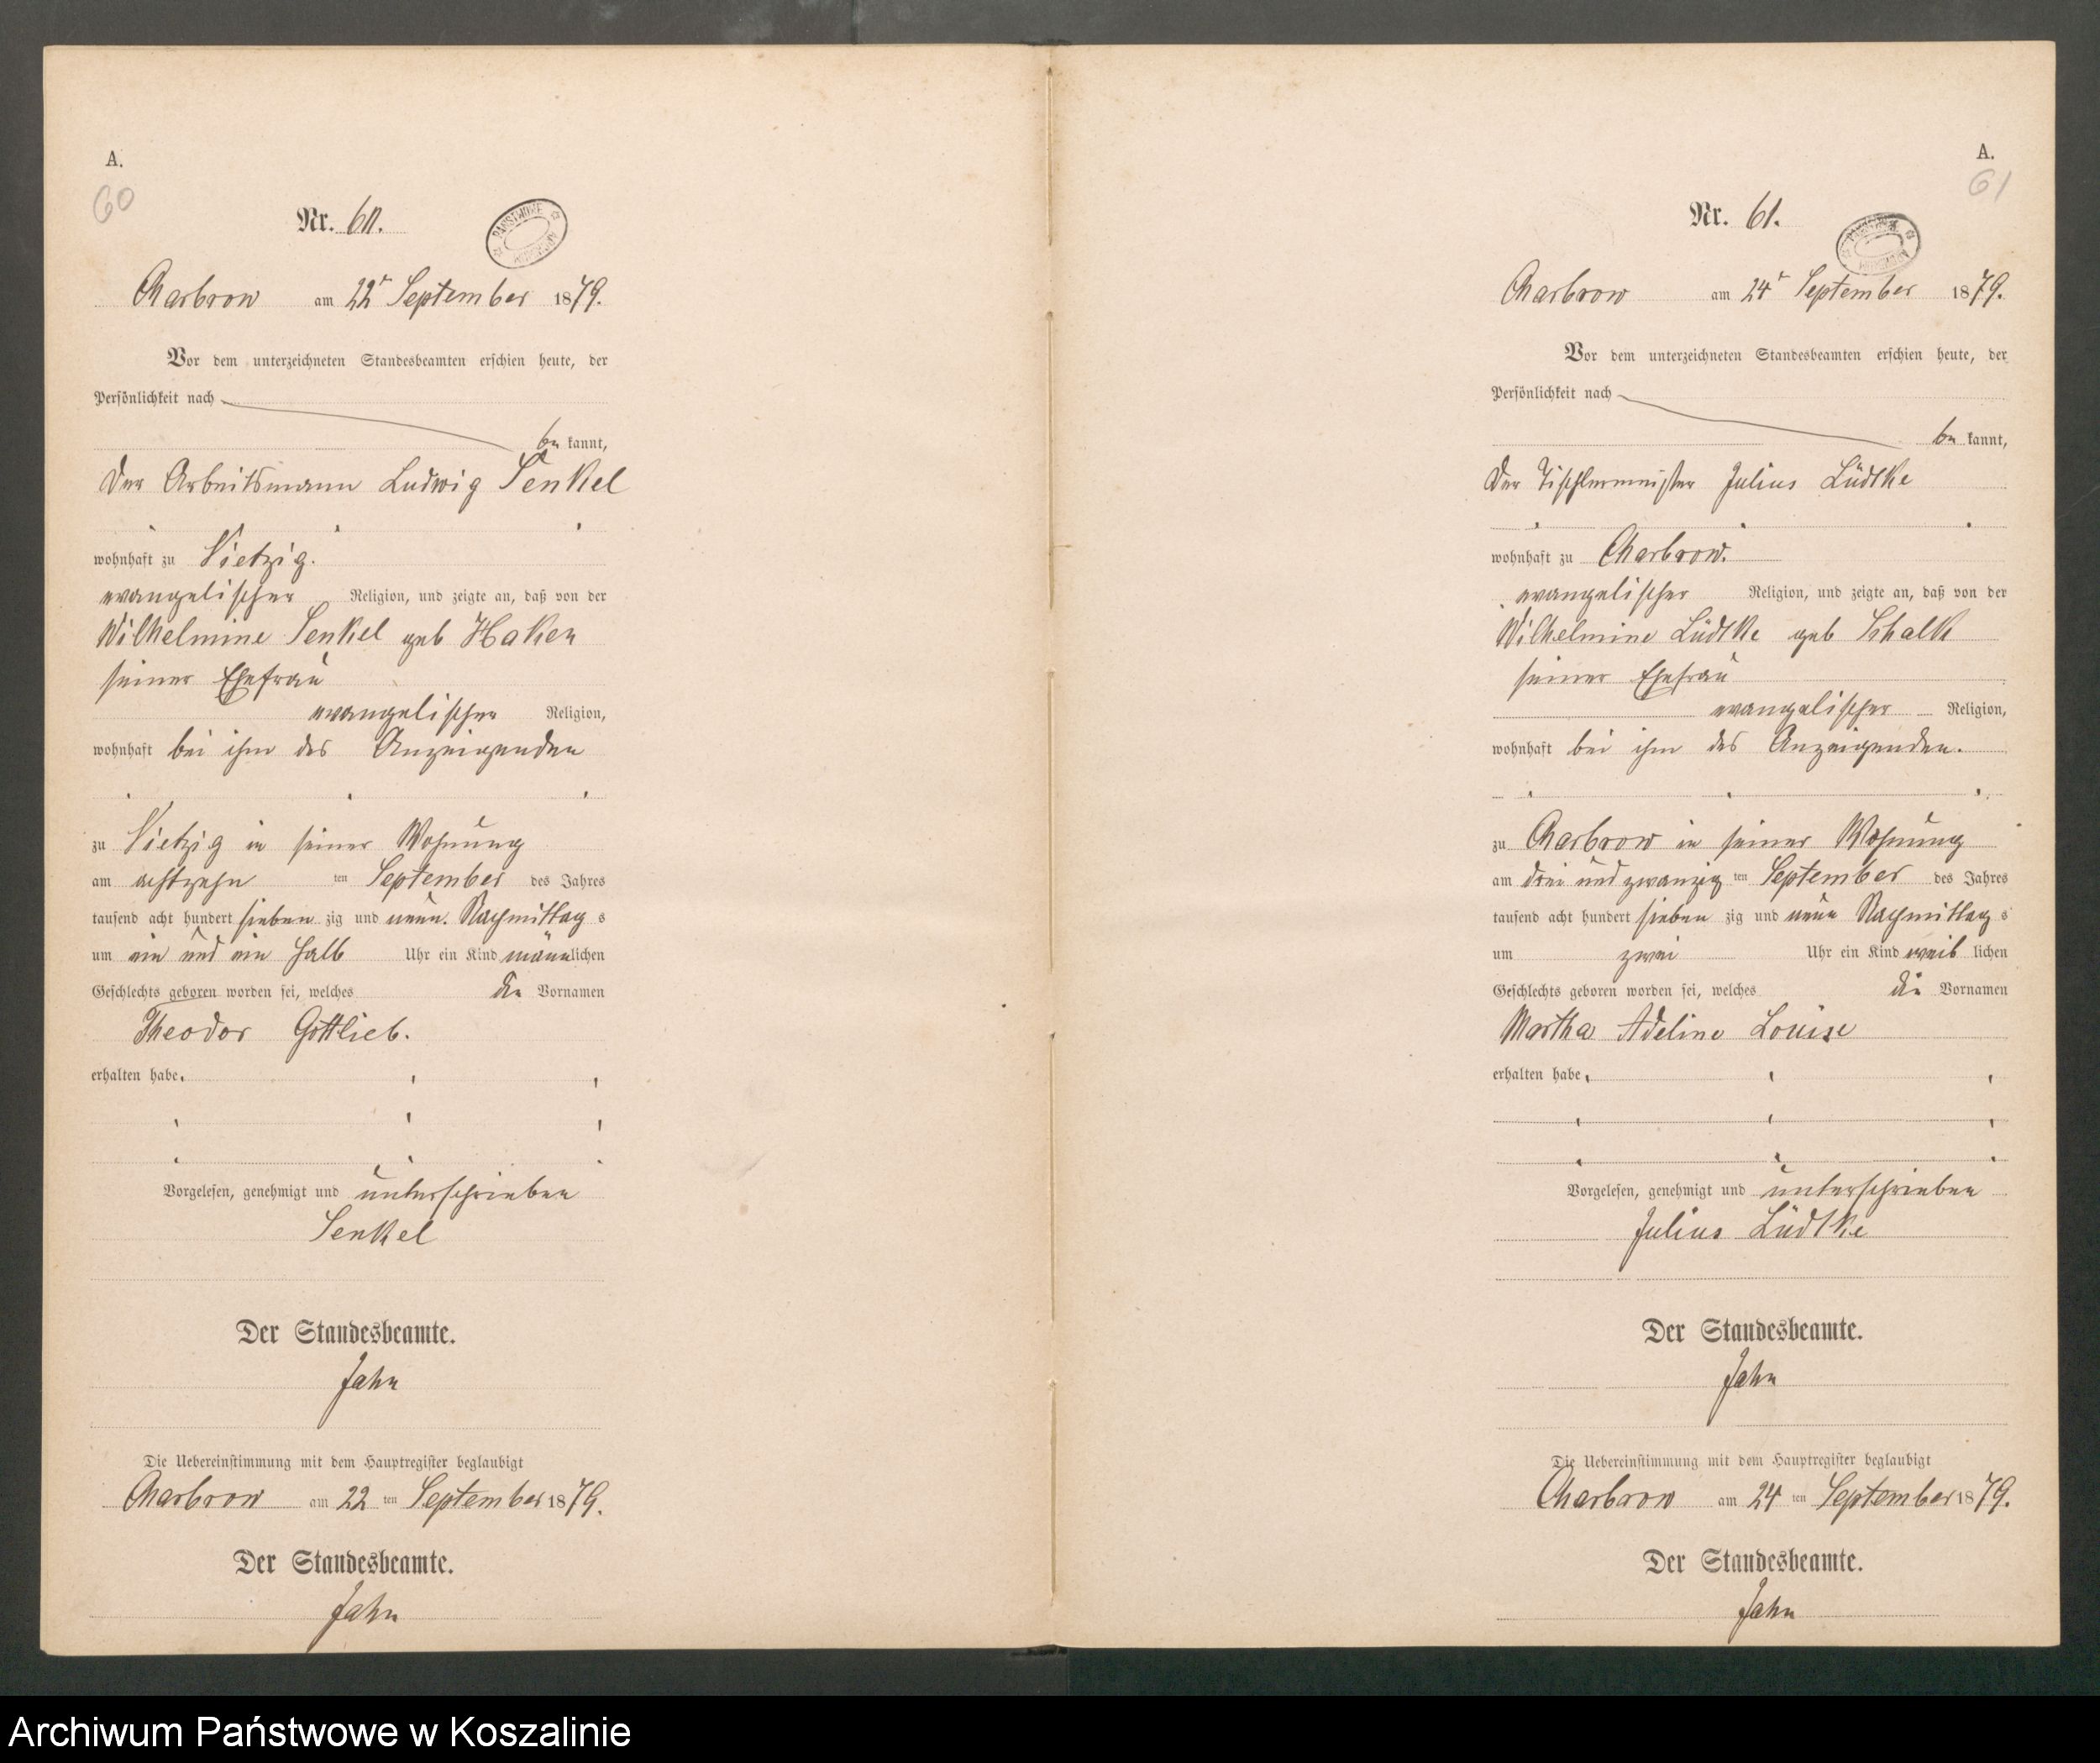 A.
60
Nr. 60.
PAŃSTWOWE ARCHIWUM
Charbrow am 22t September 1879.
Vor dem unterzeichneten Standesbeamten erschien heute, der
Persönlichkeit nach
be kannt,
der Arbeitsmann Ludwig Senkel
wohnhaft zu Vietzig.
evangelischer Religion, und zeigte an, daß von der
Wilhelmine Senkel geb Haken
seiner Ehefrau
evangelischer Religion,
wohnhaft bei ihm des Anzeigenden
zu Vietzig in seiner Wohnung
am achtzehn ten September des Jahres
tausend acht hundert sieben zig und neun. Nachmittag s
um ein und ein halb Uhr ein Kind männlichen
Geschlechts geboren worden sei, welches die Vornamen
Theodor Gottlieb.
erhalten habe.
Vorgelesen, genehmigt und unterschrieben
Senkel
Der Standesbeamte.
Jahn
Die Uebereinstimmung mit dem Hauptregister beglaubigt
Charbrow am 22 ten September 1879.
Der Standesbeamte.
Jahn
A.
61
Nr. 61.
Charbrow am 24t September 1879.
Vor dem unterzeichneten Standesbeamten erschien heute, der
Persönlichkeit nach
be kannt,
der Tischlermeister Julius Lüdtke
wohnhaft zu Charbrow.
evangelischer Religion, und zeigte an, daß von der
Wilhelmine Lüdtke geb Schalk
seiner Ehefrau
evangelischer Religion,
wohnhaft bei ihm des Anzeigenden.
zu Charbrow in seiner Wohnung
am drei und zwanzig ten September des Jahres
tausend acht hundert sieben zig und neun Nachmittag s
um zwei Uhr ein Kind weib lichen
Geschlechts geboren worden sei, welches die Vornamen
Martha Adeline Louise
erhalten habe.
Vorgelesen, genehmigt und unterschrieben
Julius Lüdtke
Der Standesbeamte.
Jahn
Die Uebereinstimmung mit dem Hauptregister beglaubigt
Charbrow am 24 ten September 1879.
Der Standesbeamte.
Jahn
Archiwum Państwowe w Koszalinie